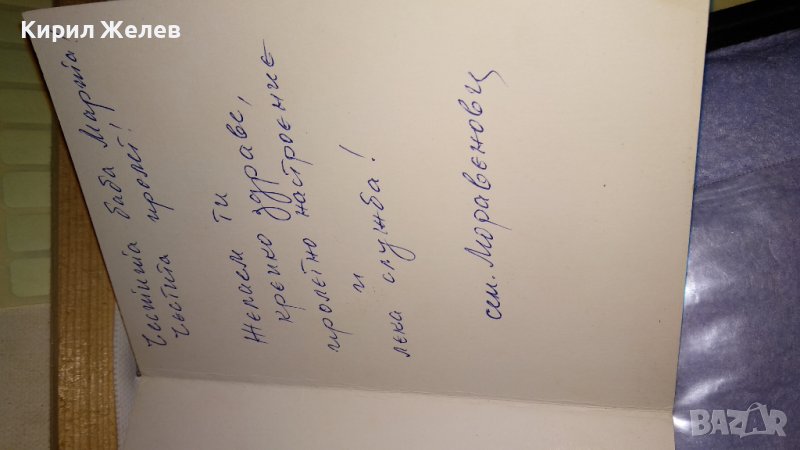 Кирил Желев
Честита баба Марта!
Честита пролет!
Желаем ти
крепко здраве,
пролетно настроение
и
лека служба!
сем. Моравенови
BAZAR